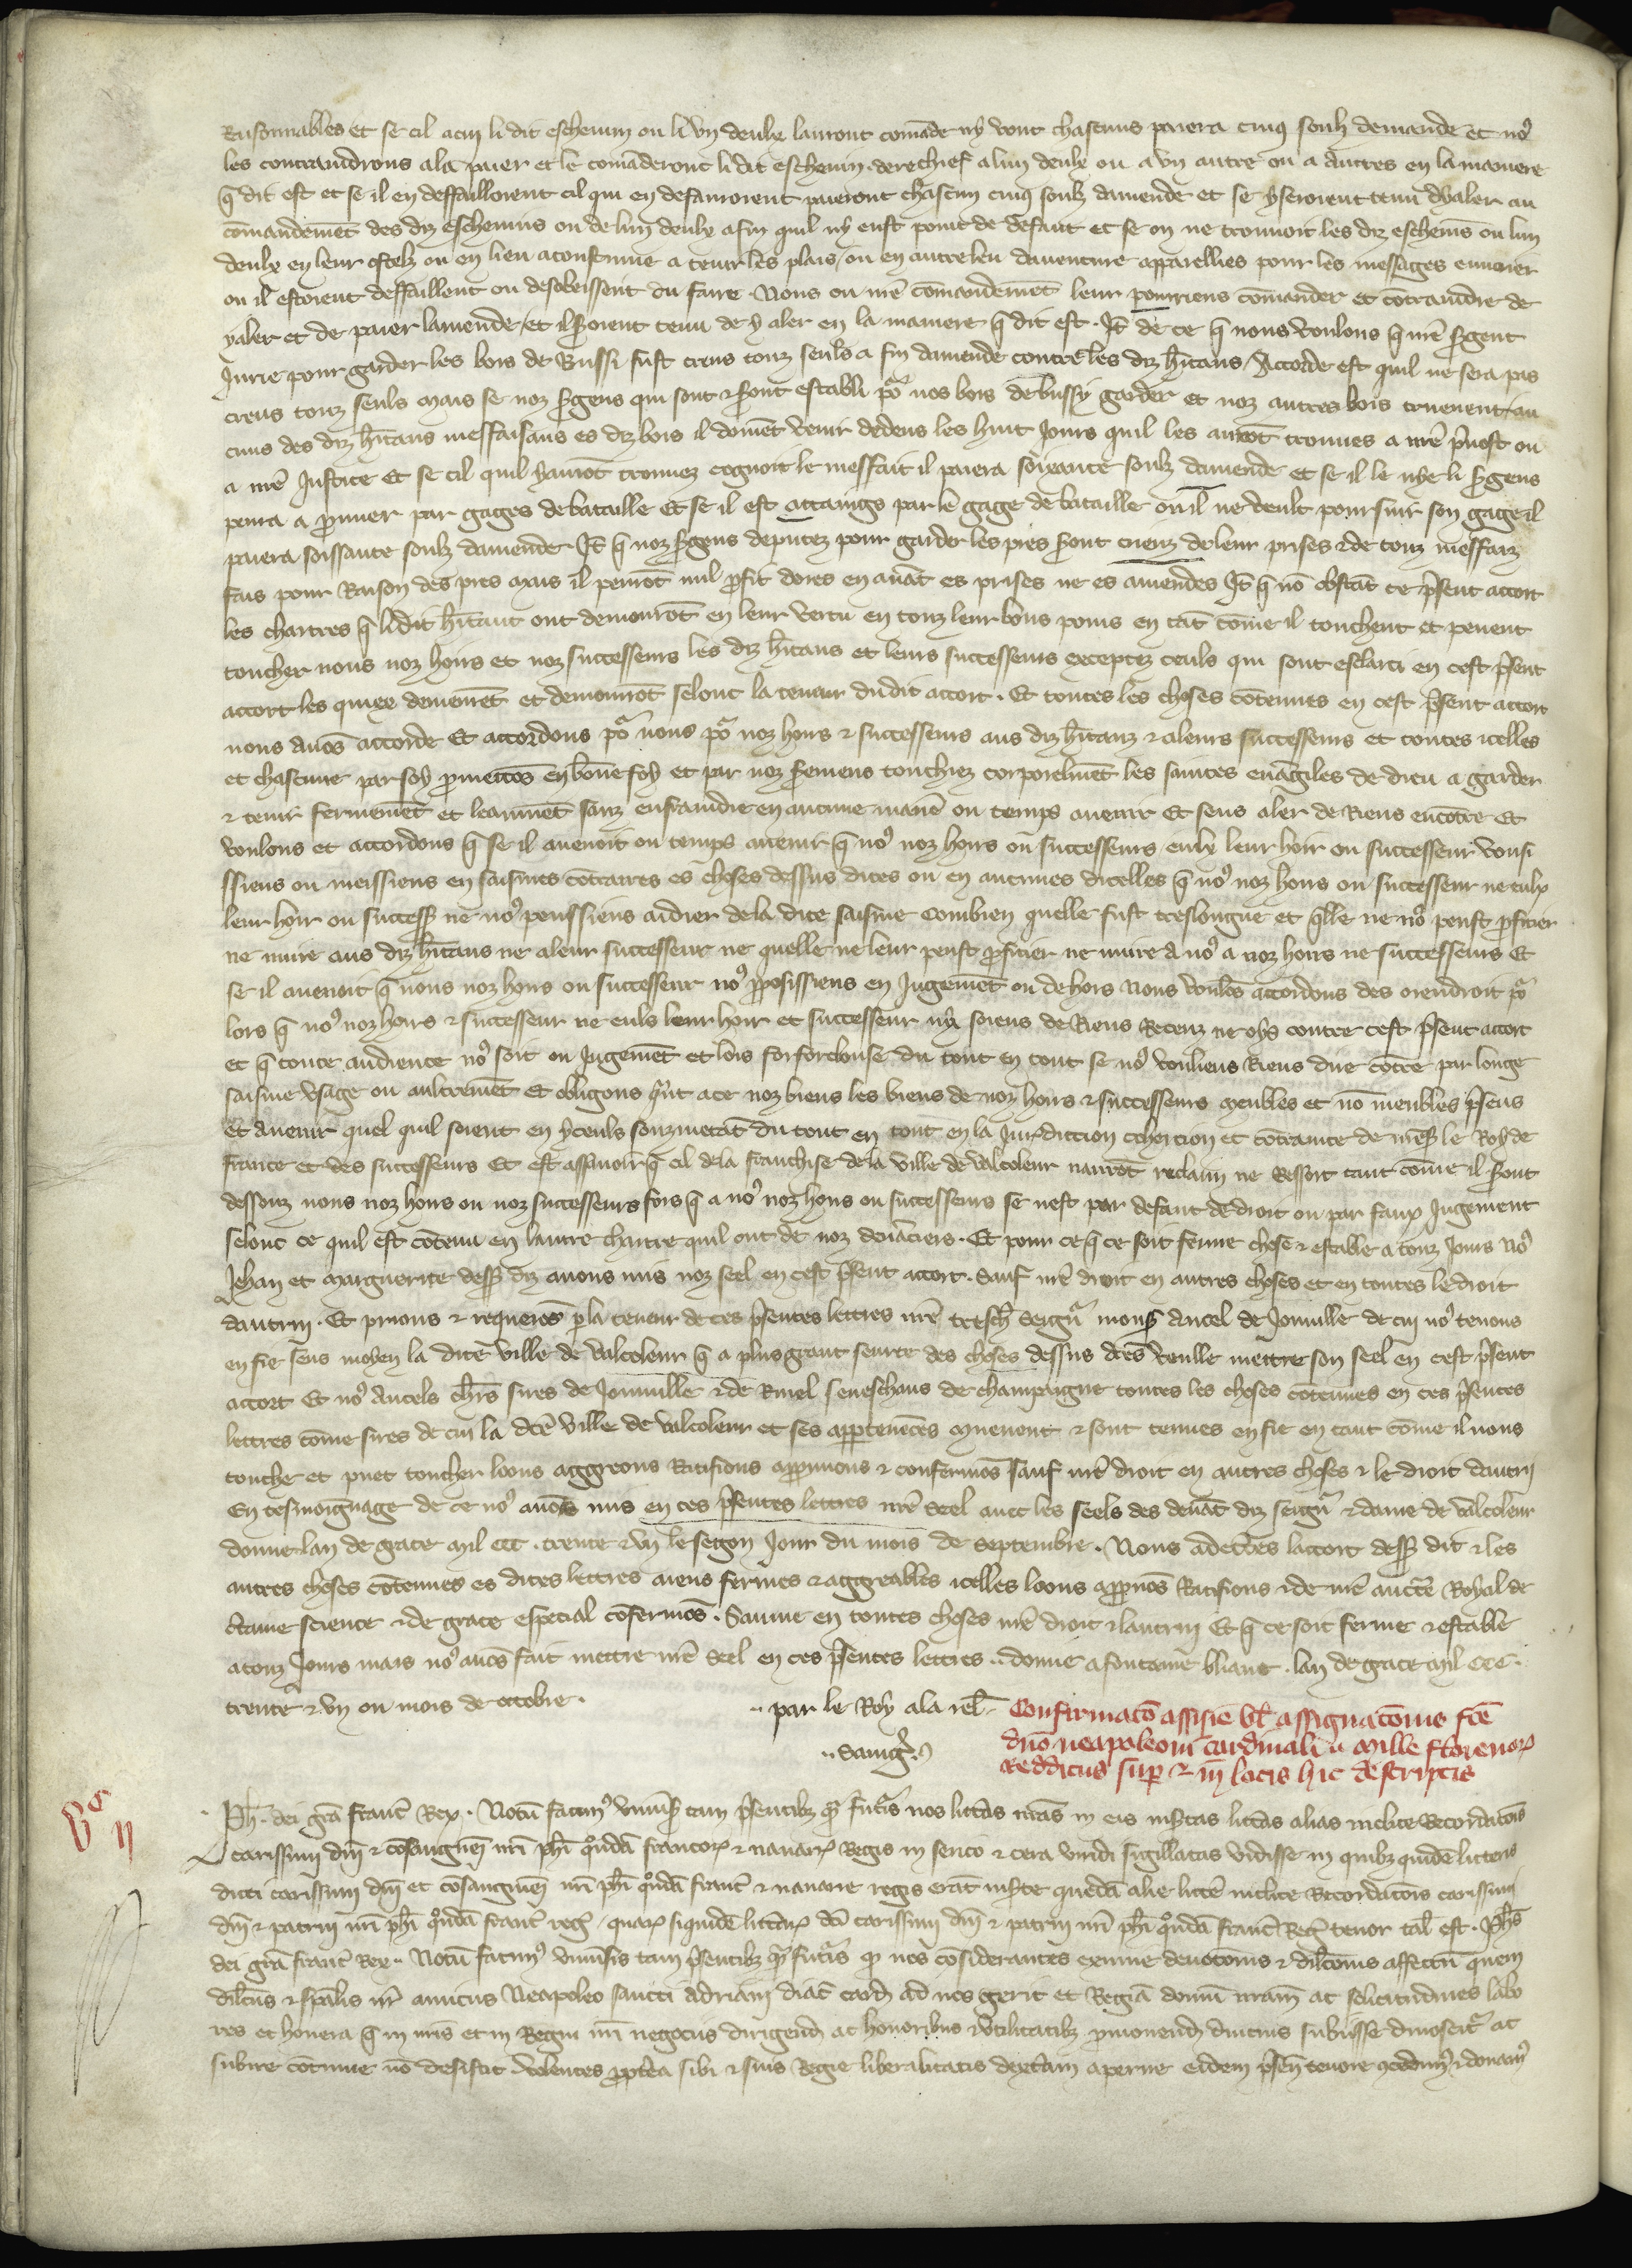 Raisonnables et se cil a cui li dit eschevin ou li vn deulx lauront comāde ny vont chascuns paiera cinq soulz demande et noꝰ
les contraindrons a la paier et le comāderont li dit eschevin derechief a lun deulx ou a vn autre ou a autres en la maniere
q̄ dit est et se il en deffailloient cil qui en defauroient paieront chascun cinq soulz damende et se y seroient tenu dy aler au
cōmandemēt des diz eschevins ou de lun deulx afin quil ny eust point de defaut et se on ne trouuoit les diz escheuīs ou lun
deulx en leur ostelz ou en lieu acoustume a tenir les plais / ou en autre leu dauenture apparellies pour les messages enuoier
ou il estoient deffaillent ou desobeissent du faire . Nous ou nr̄e cōmandemēt leur pourriens cōmander et cōtraindre de
y aler et de paier lamende / et il s̄roient tenu de y aler en la maniere q̄ dit est . It̄ de ce q̄ nous voulons q̄ nr̄e s̄rgent
Jurie pour garder les bois de Bussi fust creus touz seuls a fin damende contre les diz hītans / Accorde est quil ne sera pas
creus touz seuls mais se noz s̄rgens qui sont ⁊ s̄ront establi po᷑ nos bois de bussy garder et noz autres bois truevent au
cuns des diz hītans meffaisans es diz bois il doiuēt venir dedens les huit Jours quil les aurōt trouues a nr̄e p̄uost ou
a nr̄e Justice Et se cil quil y aurōt trouuez cognoit le meffait il paiera soixante soulz damende et se il le nye li s̄rgens
pourra a p̄ouuer par gages de bataille Et se il est attaings par le gage de bataille ou il ne veult poursuir son gage il
paiera soissante soulz damende It̄ q̄ noz s̄rgens deputez pour garder les pres s̄ront creuz de leur prises ⁊ de touz meffaiz
fais pour Raison des pres mais il penrōt nul ꝓfit dores en auāt es prises ne es amendes It̄ q̄ nō obstāt ce p̄sent accort
les chartres q̄ li dit hītant ont demourōt en leur vertu en touz leur bons poins en tāt cōme il touchent et peuent
toucher nous noz hoirs et noz successeurs les diz hītans et leurs successeurs exceptez ceuls qui sont esclarci en cest p̄sent
accort les quiex demeurēt et demourrōt selonc la teneur du dit accort . Et toutes les choses cōtenues en cest p̄sent accort
nous auōs accorde Et accordons po᷑ nous po᷑ noz hoirs ⁊ successeurs aus diz hītanz ⁊ a leurs successeurs et toutes icelles
et chascune par soy ꝓmettōs en bōne foy et par noz s̄remens touchiez corporelmēt les saintes euāgiles de dieu a garder
⁊ tenir fermemēt et leaumēt sanz enfraindre en aucune maniē ou temps auenir Et sens aler de Riens encōtre Et
voulons et accordons q̄ se il auenoit ou temps auenir q̄ noꝰ noz hoirs ou successeurs eulx leur hoir ou successeur vousi
ssiens ou meissiens en saisines cōtraires es choses dessus dites ou en aucunes dicelles q̄ noꝰ noz hoirs ou successeur ne eulx
leur hoir ou success̄ ne noꝰ peussiens aidier de la dite saisine combien quelle fust treslongue et q̄lle ne noꝰ peust ꝓficier
ne nuire aus diz hītans ne a leur successeur ne quelle ne leur peust ꝓficier ne nuire a noꝰ a noz hoirs ne successeurs Et
se il auenoit q̄ nous noz hoirs ou successeur noꝰ ꝓposissiens en Jugemēt ou dehors Nous voulōs accordons des orendroit po᷑
lors q̄ noꝰ noz hoirs ⁊ successeur ne euls leur hoir et successeur ny soiens de Riens Recenz ne oys contre cest p̄sent accort
et q̄ toute audience noꝰ soit ou Jugemēt et lois forforclouse du tout en tout se noꝰ vouliens Riens dire cōtre par longe
saisine vsage ou aultremēt Et obligons quāt a ce noz biens les biens de noz hoirs ⁊ successeurs meubles et nō meubles p̄sens
et auenir quel quil soient en yceuls souzmetāt du tout en tout en la Jurisdiction cohercion et cōtrainte de mess̄ le Roy de
france et des successeurs Et est assauoir q̄ cil de la franchise de la ville de valcoleur naurōt reclaim ne Ressort tant cōme il s̄ront
dessouz nous noz hoirs ou noz successeurs fors q̄ a noꝰ noz hoirs ou successeurs se nest par defaut de droit ou par faux Jugement
selonc ce quil est cōtenu en lautre chartre quil ont de noz deuāciers . Et pour ce q̄ ce soit ferme chose ⁊ estable a touz Jours Noꝰ
Jehan et marguerite dess̄ diz auons mis noz seel en cest p̄sent accort . Sauf nr̄e droit en autres choses et en toutes le droit
dautrui . Et prions ⁊ requerōs p̱ la teneur de ces p̄sentes lettres nr̄e tresch̄ seigñ mons̄ Ancel de Joinuille de cui noꝰ tenons
en fie sens moyen la dite ville de valcoleur q̄ a plus grant seurte des choses dessus dc̄es veulle mettre son seel en cest p̄sent
accort Et noꝰ Ancels chr̄s sires de Joinuille ⁊ de Rinel seneschaus de champaigne toutes les choses cōtenues en ces p̄sentes
lettres cōme sires de cui la dc̄e ville de valcoleur et ses appartenāces mueuent ⁊ sont tenues en fie en tant cōme il nous
touche et puet toucher loons aggreons Ratifions approuuons ⁊ confermōs sauf nr̄e droit en autres choses ⁊ le droit dautrui
En tesmoignage de ce noꝰ auons mis en ces p̄sentes lettres nr̄e seel auec les seels des deuāt diz seigñ ⁊ dame de valcoleur
donne lan de grace mil ccc . trente ⁊ vn le segon Jour du mois de Septembre . Nous adecertes laccort dess̄ dit ⁊ les
autres choses cōtenues es dites lettres aiens fermes ⁊ aggreables icelles loons approuōs Ratifions ⁊ de nr̄e aucte Royal de
ctaine science ⁊ de grace especial cōfermōs . Sauue en toutes choses nr̄e droit ⁊ lautrui Et q̄ ce soit ferme ⁊ estable
a touz Jours mais noꝰ auōs fait mettre nr̄e seel en ces p̄sentes lettres .. donne a fontaine bliaut . lan de grace mil ccc .
trente ⁊ vn ou mois de octobre .
.. par le Roy a la rel̄
.. Sauig̃.
Confirmacō assisie vl̄ assignacōnis fc̄e
dn̄o neapoleoni cardinali de mille florenoꝝ
redditus sup̱ ⁊ in locis hic descriptis
vᶜ ıı
Ph̄ . dei gr̄a franc̄ Rex . Notū facimꝰ vniūs̄ tam p̄sentibꝫ q̄ fut̄is nos litt̄as nr̄as in eis insertas litt̄as alias inclite Recordacōis
carissimi dn̄i ⁊ cōsanguiei nr̄i ph̄i qͦndā francoꝝ ⁊ nauarꝝ Regis in serico ⁊ cera viridi sigillatas vidisse in quibꝫ quidē litteris
dicti carissimi dn̄i et cōsanguiei nr̄i ph̄i qͦndā franc̄ ⁊ nauarre regis erāt inserte quedā alie litt̄e inclite Recordacōis carissimi
dn̄i ⁊ patrui nr̄i ph̄i qͦndā franc̄ reg̃ / quaꝝ siquidē litt̄aꝝ dc̄i carissimi dn̄i ⁊ patrui nr̄i ph̄i qͦndā franc̄ Reg̃ tenor tal̄ est . Ph̄s
dei gr̄a franc̄ Rex .. Notū facimꝰ vniūsis tam p̄sentibꝫ q̄ fut̄is qͩ nos cōsiderantes eximie deuocōnis ⁊ dilc̄onis affectū quem
dilc̄us ⁊ sp̄alis nr̄ amicus Neapoleo sancti Adriani diac̄ card̄ ad nos gerit et Regiā domū nr̄am ac solicitudines labo
res et honera q̄ in nr̄is et in Regni nr̄i negociis dirigend̄ ac honoribus ⁊ vtilitatibꝫ ꝓmouend̄ diucius subiisse dinoscit᷑ ac
subire cōtinue nō desistit volentes ꝓpt̄ea sibi ⁊ suis Regie liberalitatis dext̄am aperire eidem p̄sen̄ tenore ꝯcedimꝰ ⁊ donamꝰ